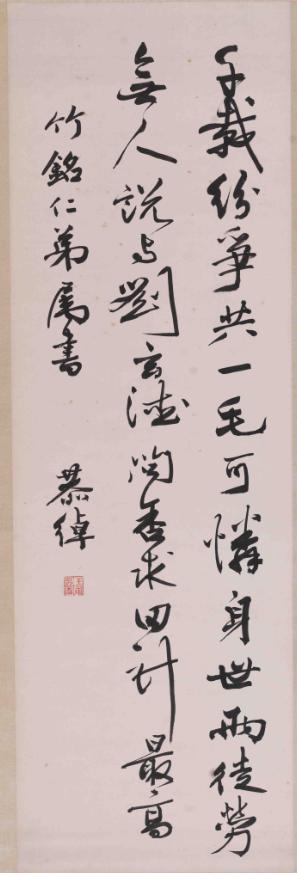 千載紛爭共一毛可憐身世兩徒勞
無人說與劉玄德問舍求田計最高
竹銘仁弟屬書 恭綽